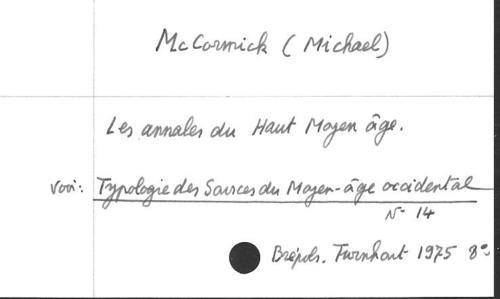 McCormick (Michael)
Les annales du Haut Moyen âge.
voir: Typologie des Sources du Moyen-âge occidental
N° 14
Brépols. Turnhout 1975 8°